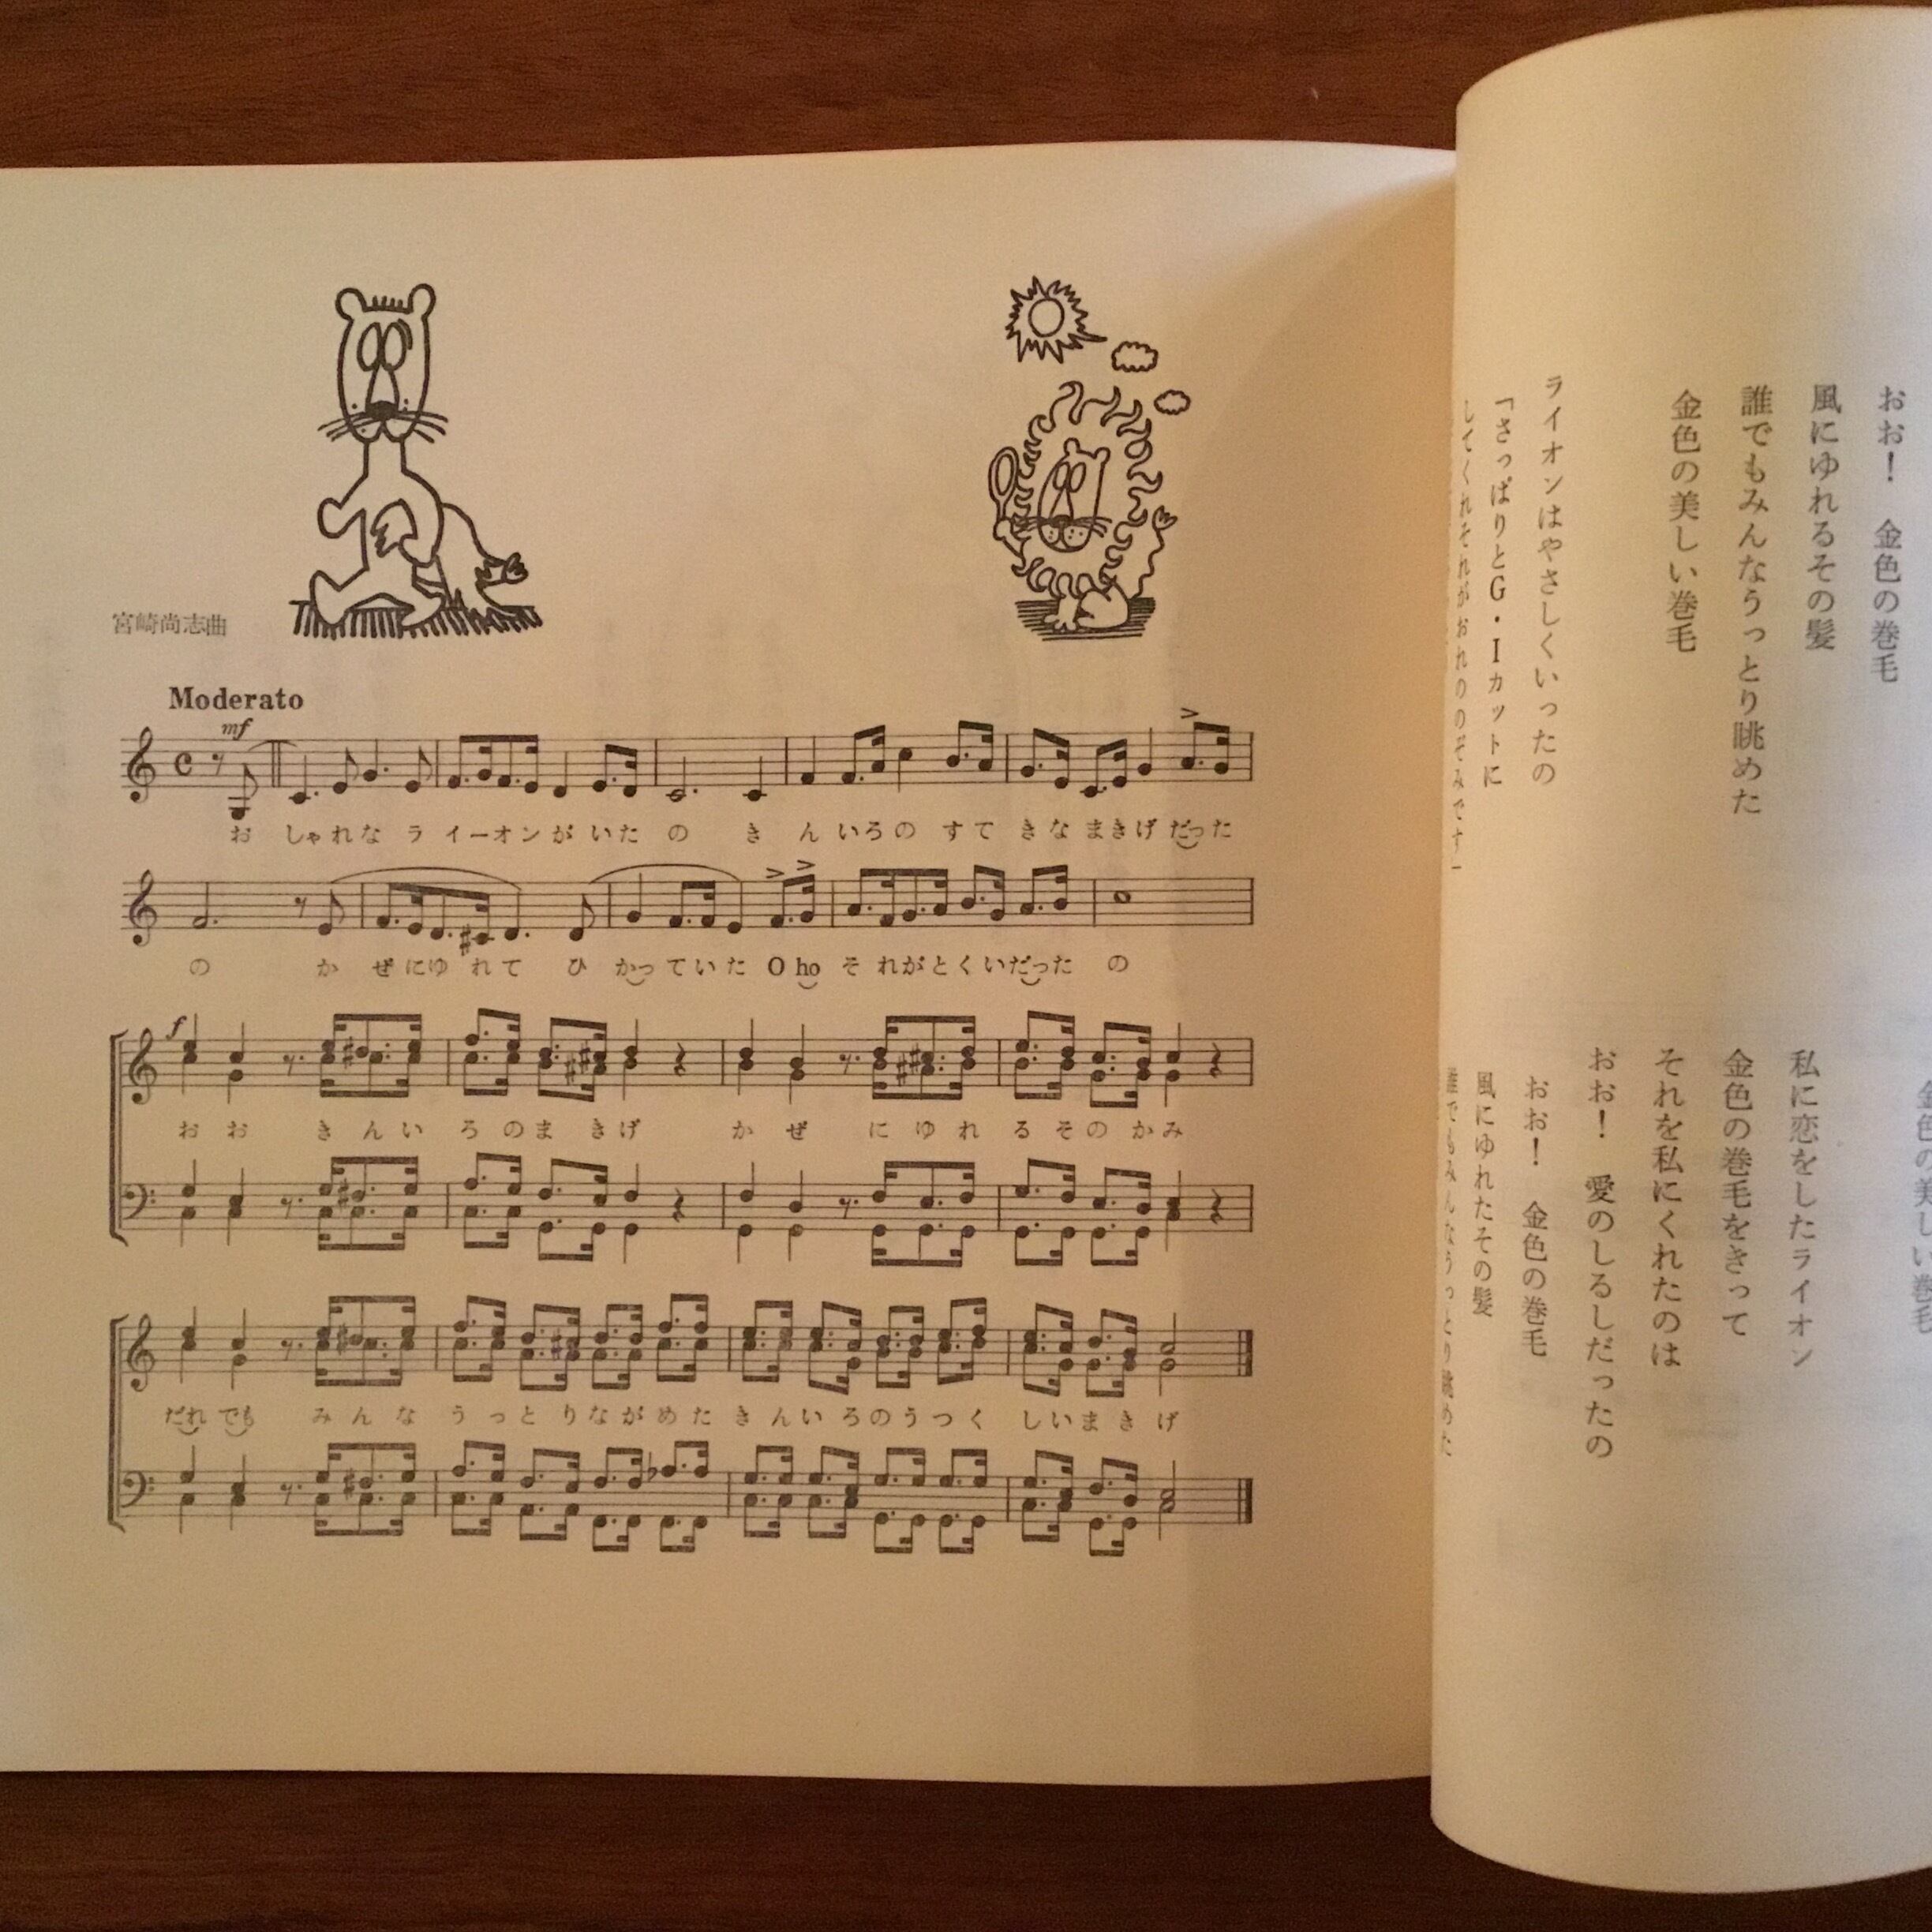 宮崎尚志曲
Moderato
mf
お しゃ れ な ラ イ ー オ ン が い た の き ん い ろ の す て き な ま き げ だっ た
の か ぜ に ゆ れ て ひ かっ て い た O ho そ れ が と く い だっ た の
f
お お き ん い ろ の ま き げ か ぜ に ゆ れ る そ の か み
だれ でも み ん な う っ と り な が め た き ん い ろ の う つ く し い ま き げ
おお! 金色の巻毛
風にゆれるその髪
誰でもみんなうっとり眺めた
金色の美しい巻毛
ライオンはやさしくいったの
「さっぱりとG・Iカットに
してくれそれがおれののぞみです」
金色の美しい巻毛
私に恋をしたライオン
金色の巻毛をきって
それを私にくれたのは
おお! 愛のしるしだったの
おお! 金色の巻毛
風にゆれたその髪
誰でもみんなうっとり眺めた